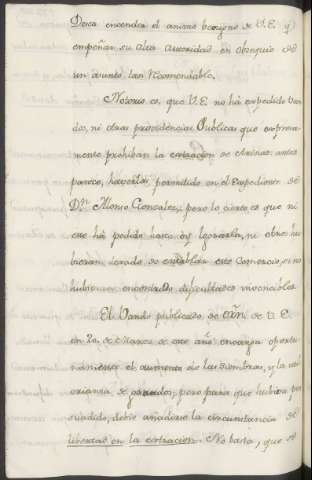 Desea encender el animo benigno de V. E. y
empeñar su alta autoridad en obsequio de
un asunto tan recomendable.
Notorio es, que V. E. no há expedido Van
do, ni otras providencias Publicas que expresa
mente prohiban la extraccion de Arinas: antes
parece, haverlas permitido en el Expediente de
Dn. Alonso Gonzalez; pero lo cierto es que ni
este há podido hasta oy lograrla, ni otros hu
vieran dexado de entablar este Comercio, si no
hubieran encontrado dificultades invencibles.
El Vando publicado de orñ. de V. E.
en 20. de Marzo de este año encarga oportu
namente el aumento de las siembras, y la
crianza de ganados, pero para que hubiera per
suadido, debio añadirse la circunstancia de
libertad en la extraccion. No basta, que se